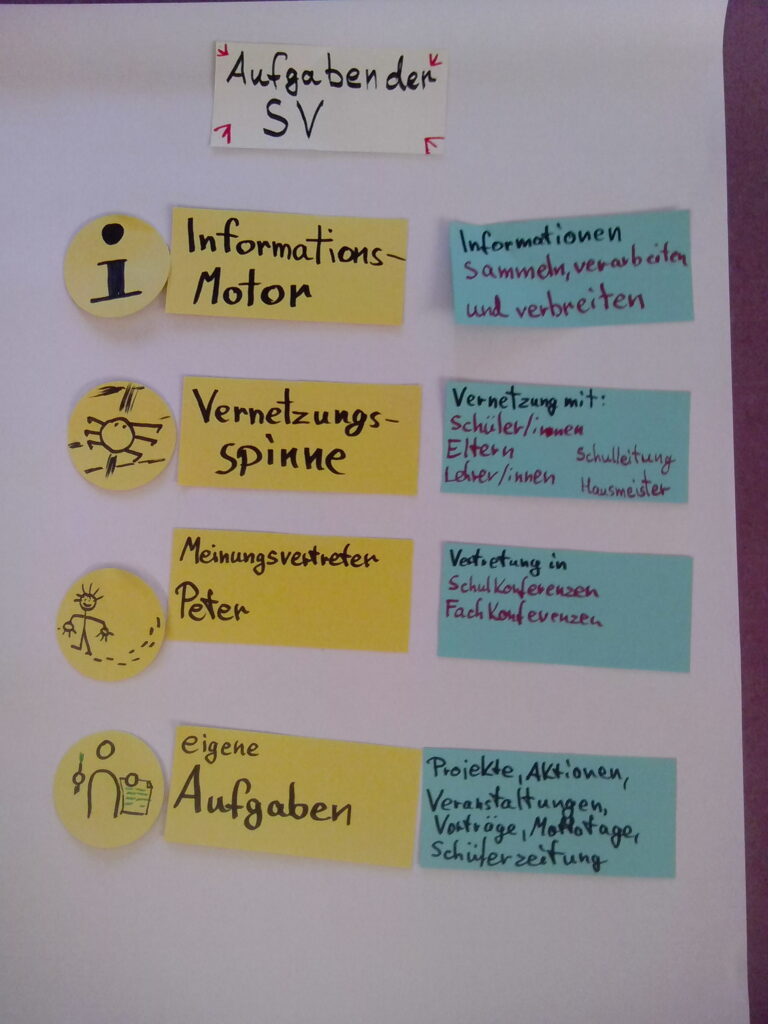 Aufgaben der
SV
i
Informations-
Motor
Informationen
sammeln, verarbeiten
und verbreiten
Vernetzungs-
spinne
Vernetzung mit:
Schüler/innen
Eltern
Lehrer/innen
Schulleitung
Hausmeister
Meinungsvertreter
Peter
Vertretung in
Schulkonferenzen
Fachkonferenzen
eigene
Aufgaben
Projekte, Aktionen,
Veranstaltungen,
Vorträge, Mottotage,
Schülerzeitung